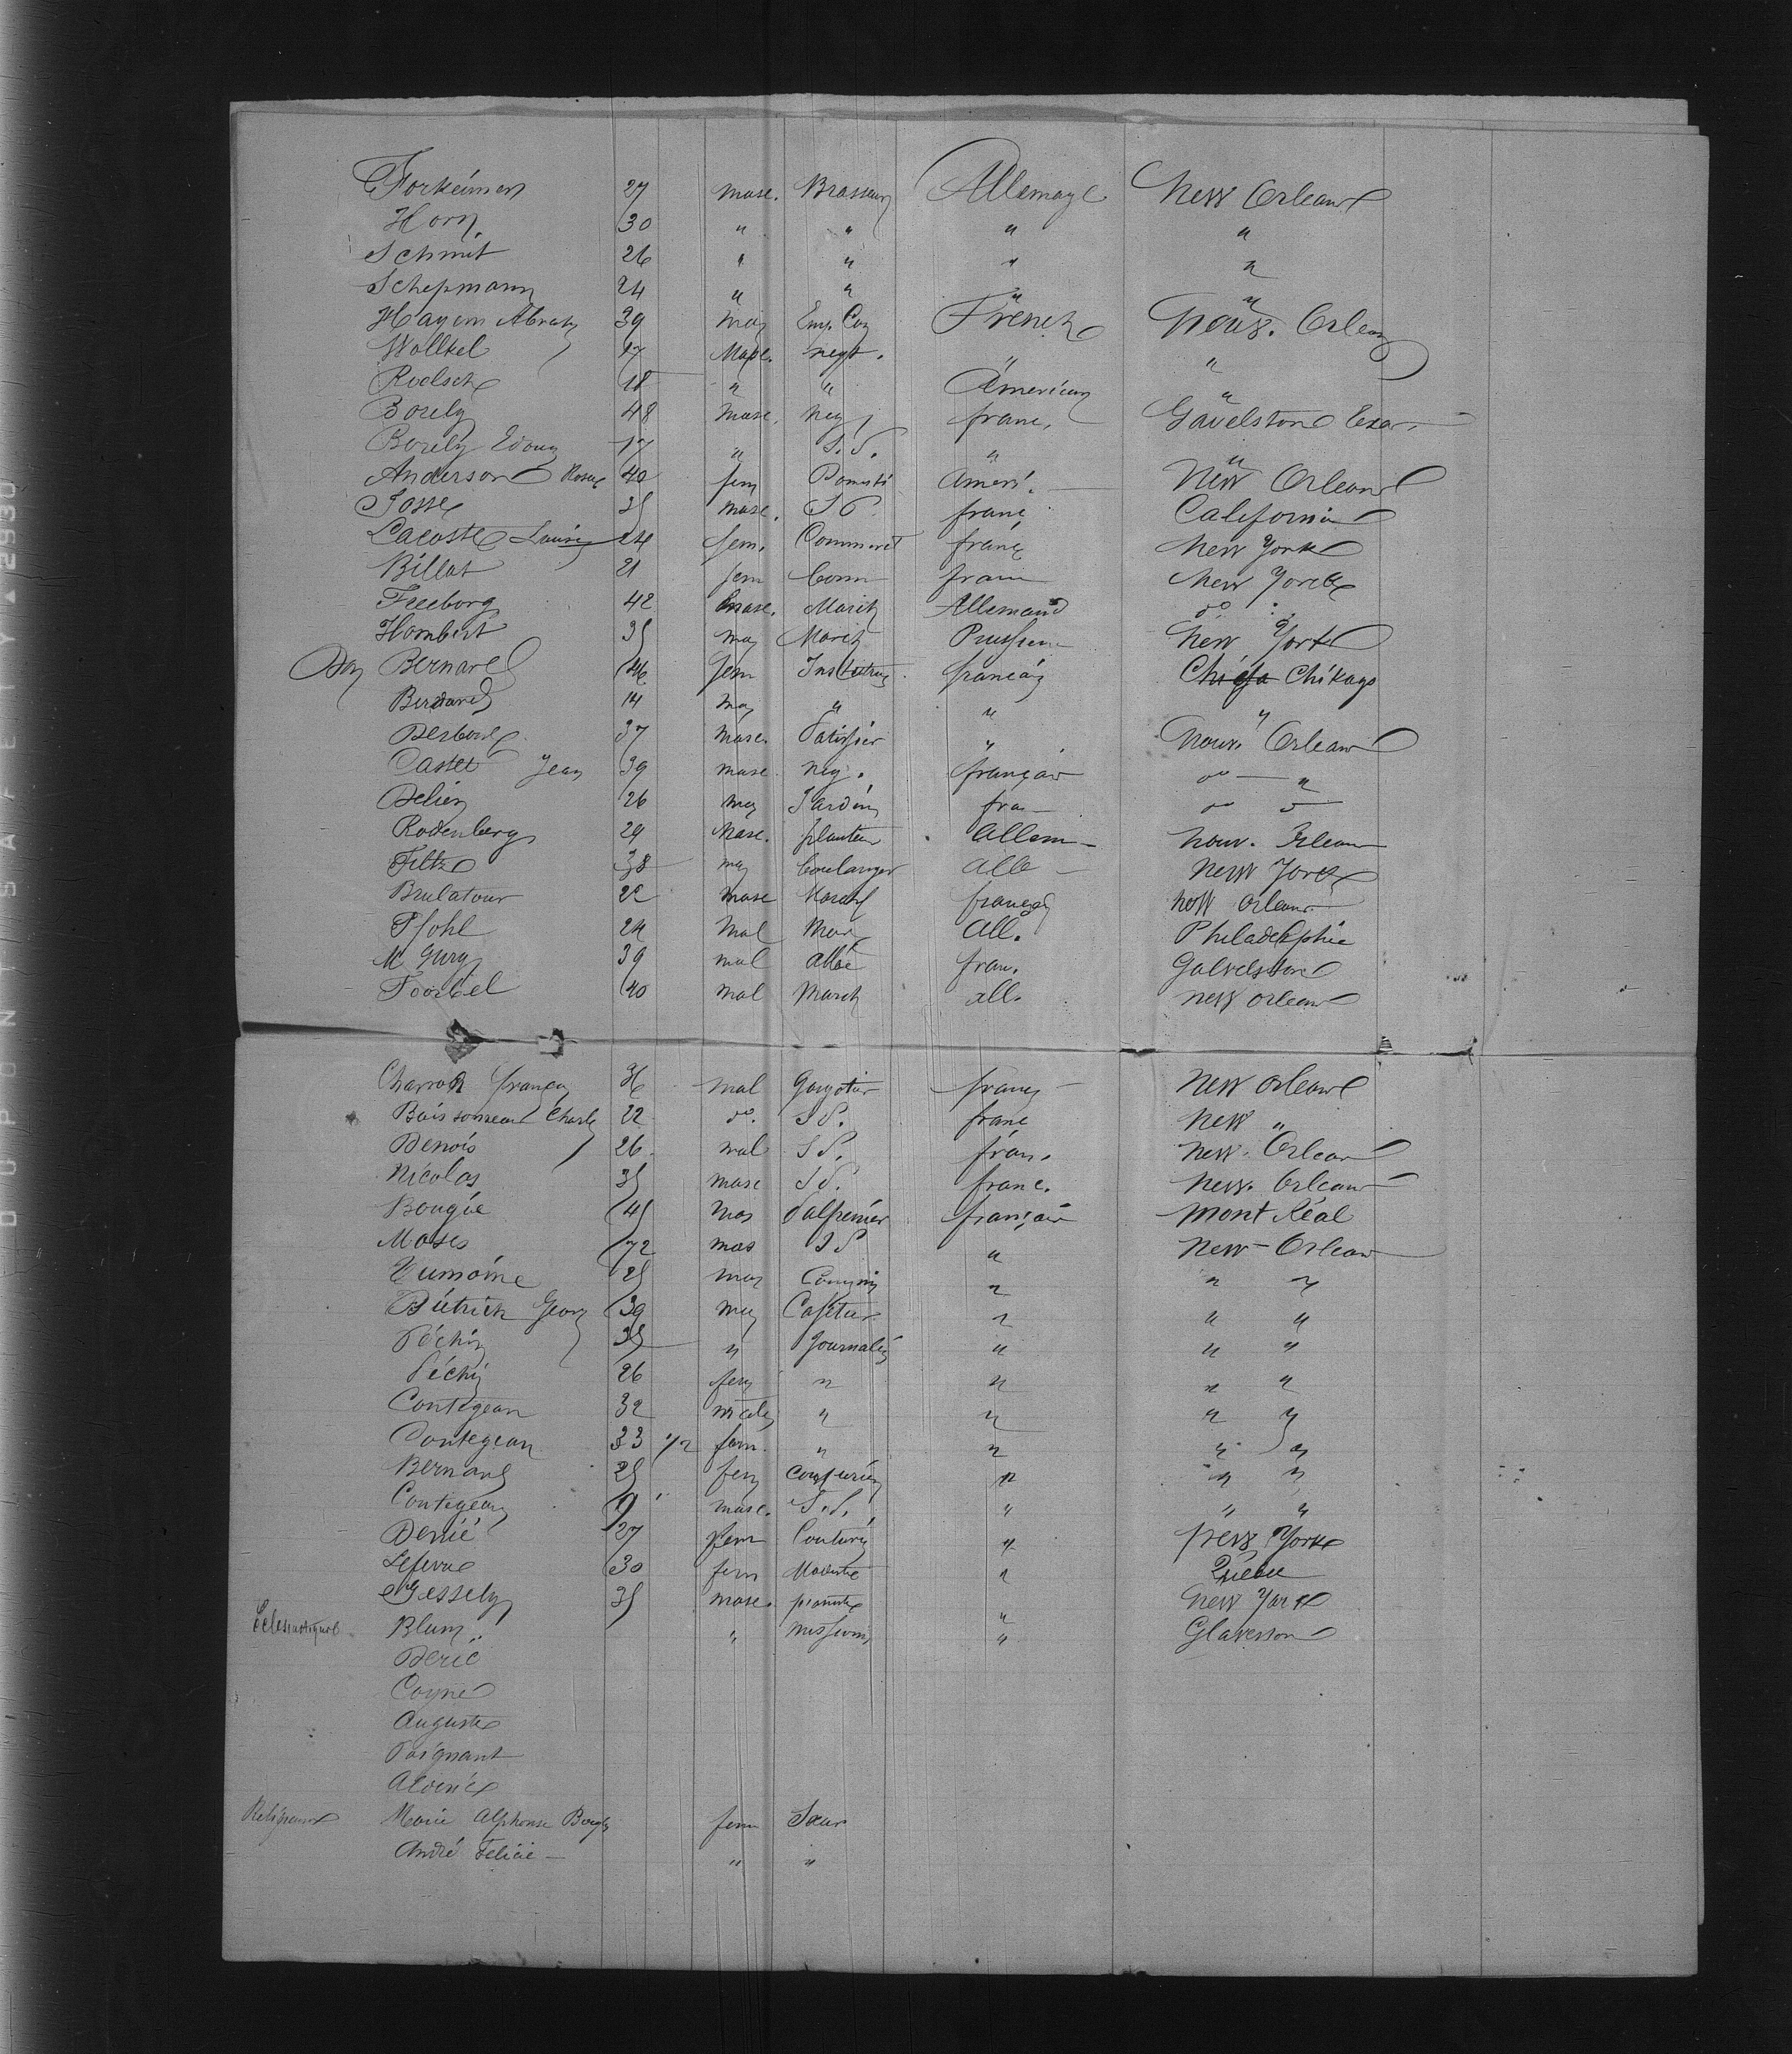 Forkeimer 27 masc. Brasseur Allemage New Orleans
Horn. 30 " " " "
Schmit 26 " " " "
Schepmann 24 " " " "
Hayem Abrah 39 mas Emp. Com French Nouv. Orlean
Wollkel 17 Masc. negt. " "
Roelsch 18 " " American "
Borely 48 masc. neg franc. Gavelstone Texas
Borely Edoua 17 " S.P. " "
Anderson Rosac 40 fem Domesti Ameri. New Orleans
Josse 35 masc. SP. franç California
Lacoste Louise 24 fem. Commerct franç New York
Billot 21 fem Comm franc New Yorck
Freeborg 42 masc. March Allemand do
Hombert 35 mas March Prussien New York
Bernard 46 fem Institutrice français Chiga Chikago
Bernard 14 mas " " "
37 masc. Patissier " Nouv. Orlean
Castex Jean 39 masc. neg. français do "
Delien 26 mas Jardin fra do
Rodenberg 29 Masc. planteur Allem Nouv. Orlean
Feltz 38 mas boulanger Alle New Yorck
Brulatour 22 masc March français New Orleans
Pfohl 24 Mal Mar All. Philadelphie
39 mal fran. Galvelston
40 mal March all. new orleans
Charron françois 36 mal Gargotier franç New Orleans
Boissonneau Charle 22 do. SP. franc New "
Denois 26 mal SP. fran. New. Orlean
Nicolas 35 masc SP. franc. New. Orleans
Bougie 45 mas français Mont Réal
Moses 72 mas SP " New-Orlean
25 mas " " "
Dietrich Georg 39 mas Cafetier " " "
Péchin 35 " Journalier " " "
Péchin 26 fem " " " "
Contegean 32 male " " " "
Contegean 33 1/2 fem. " " " "
Bernard 25 fem Couturière " " "
Contegean 9 masc. S.P. " " "
Denié 27 fem Couturiè " New York
Lefevre 30 fem Modiste " Québec
Gessely 35 masc. pianiste " New York
Eclesiastiques Blum " mission " Glaveston
Deric
Coyne
Auguste
Poignant
Aloeric
Religieuses Marie Alphonse fem Sœur
André Felicie " "
DUPONT SAFETY 2930